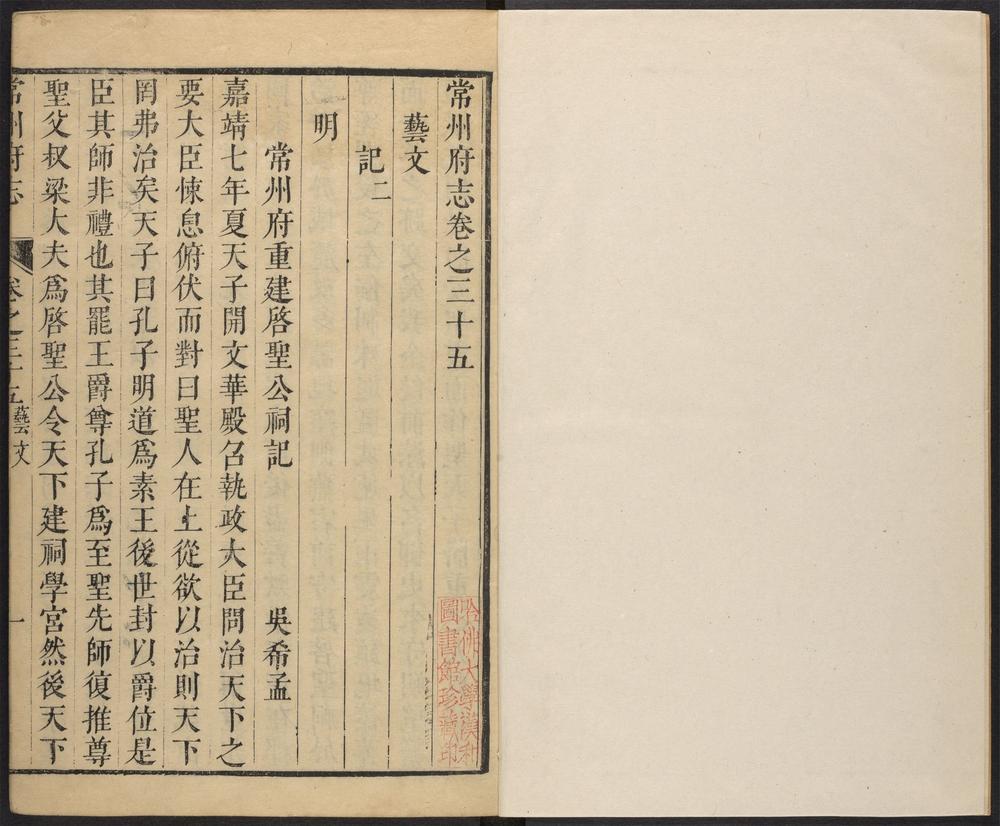 常州府志卷之三十五
藝文
記二
明
常州府重建啓聖公祠記 吳希孟
嘉靖七年夏天子開文華殿召執政大臣問治天下之
要大臣悚息俯伏而對曰聖人在上從欲以治則天下
罔弗治矣天子曰孔子明道爲素王後世封以爵位是
臣其師非禮也其罷王爵尊孔子爲至聖先師復推尊
聖父叔梁大夫爲啓聖公令天下建祠學宮然後天下
常州府志 卷之三十五 藝文 一
哈佛大學漢和
圖書館珍藏印